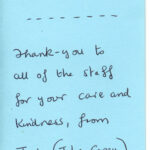 Thank-you to
all of the staff
for your care and
Kindness, from